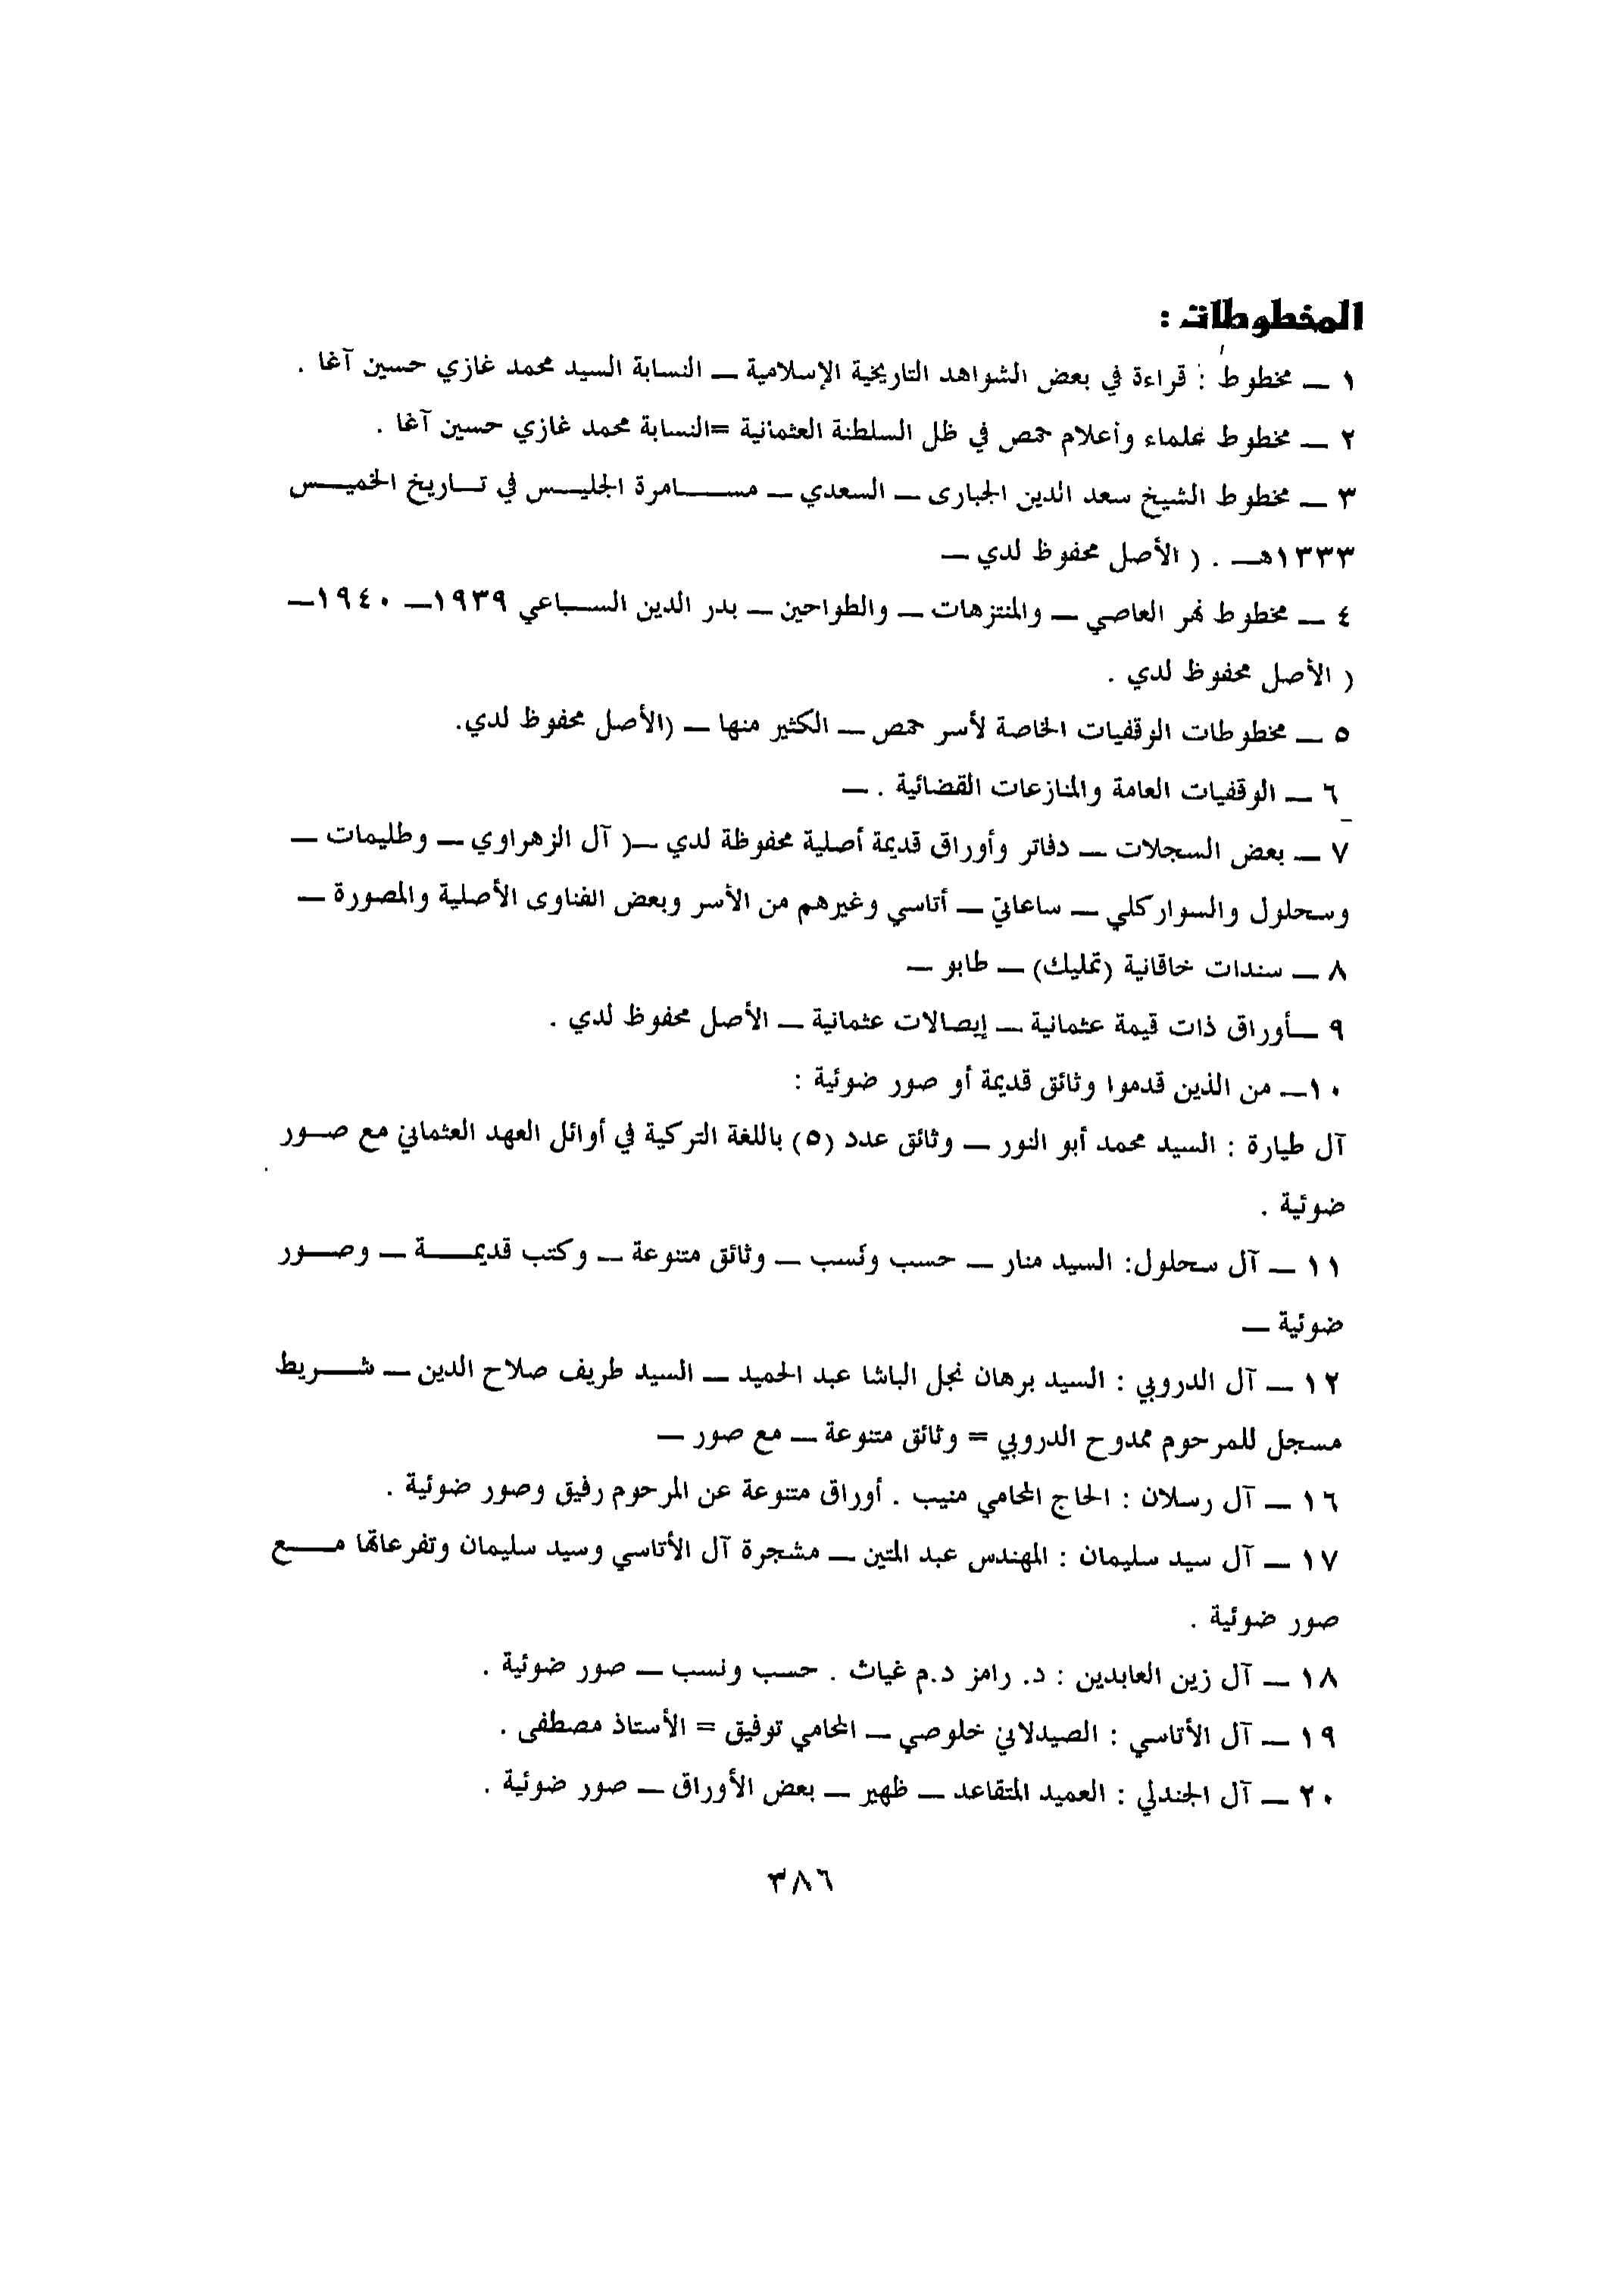 المخطوطات :
١ ــ مخطوط : قراءة في بعض الشواهد التاريخية الإسلامية ــ النسابة السيد محمد غازي حسين آغا .
٢ ــ مخطوط علماء وأعلام حمص في ظل السلطنة العثمانية =النسابة محمد غازي حسين آغا .
٣ ــ مخطوط الشيخ سعد الدين الجبارى ــ السعدي ــ مســـامرة الجليــس في تــاريخ الخميــس
١٣٣٣هــ . ( الأصل محفوظ لدي ــ
٤ ــ مخطوط نهر العاصي ــ والمنتزهات ــ والطواحين ــ بدر الدين الســباعي ١٩٣٩ــ ١٩٤٠ــ
( الأصل محفوظ لدي .
٥ ــ مخطوطات الوقفيات الخاصة لأسر حمص ــ الكثير منها ــ (الأصل محفوظ لدي.
٦ ــ الوقفيات العامة والمنازعات القضائية . ــ
٧ ــ بعض السجلات ــ دفاتر وأوراق قديمة أصلية محفوظة لدي ــ( آل الزهراوي ــ وطليمات ــ
وسحلول والسواركلي ــ ساعاتي ــ أتاسي وغيرهم من الأسر وبعض الفتاوى الأصلية والمصورة ــ
٨ ــ سندات خاقانية (تمليك) ــ طابو ــ
٩ ــأوراق ذات قيمة عثمانية ــ إيصالات عثمانية ــ الأصل محفوظ لدي .
١٠ــ من الذين قدموا وثائق قديمة أو صور ضوئية :
آل طيارة : السيد محمد أبو النور ــ وثائق عدد (٥) باللغة التركية في أوائل العهد العثماني مع صــور
ضوئية .
١١ ــ آل سحلول: السيد منار ــ حسب ونسب ــ وثائق متنوعة ــ وكتب قديمـــة ــ وصــور
ضوئية ــ
١٢ ــ آل الدروبي : السيد برهان نجل الباشا عبد الحميد ــ السيد طريف صلاح الدين ــ شـــريط
مسجل للمرحوم ممدوح الدروبي = وثائق متنوعة ــ مع صور ــ
١٦ ــ آل رسلان : الحاج المحامي منيب . أوراق متنوعة عن المرحوم رفيق وصور ضوئية .
١٧ ــ آل سيد سليمان : المهندس عبد المتين ــ مشجرة آل الأتاسي وسيد سليمان وتفرعاتها مـــع
صور ضوئية .
١٨ ــ آل زين العابدين : د. رامز د.م غياث . حسب ونسب ــ صور ضوئية .
١٩ ــ آل الأتاسي : الصيدلاني خلوصي ــ المحامي توفيق = الأستاذ مصطفى .
٢٠ ــ آل الجندلي : العميد المتقاعد ــ ظهير ــ بعض الأوراق ــ صور ضوئية .
٣٨٦